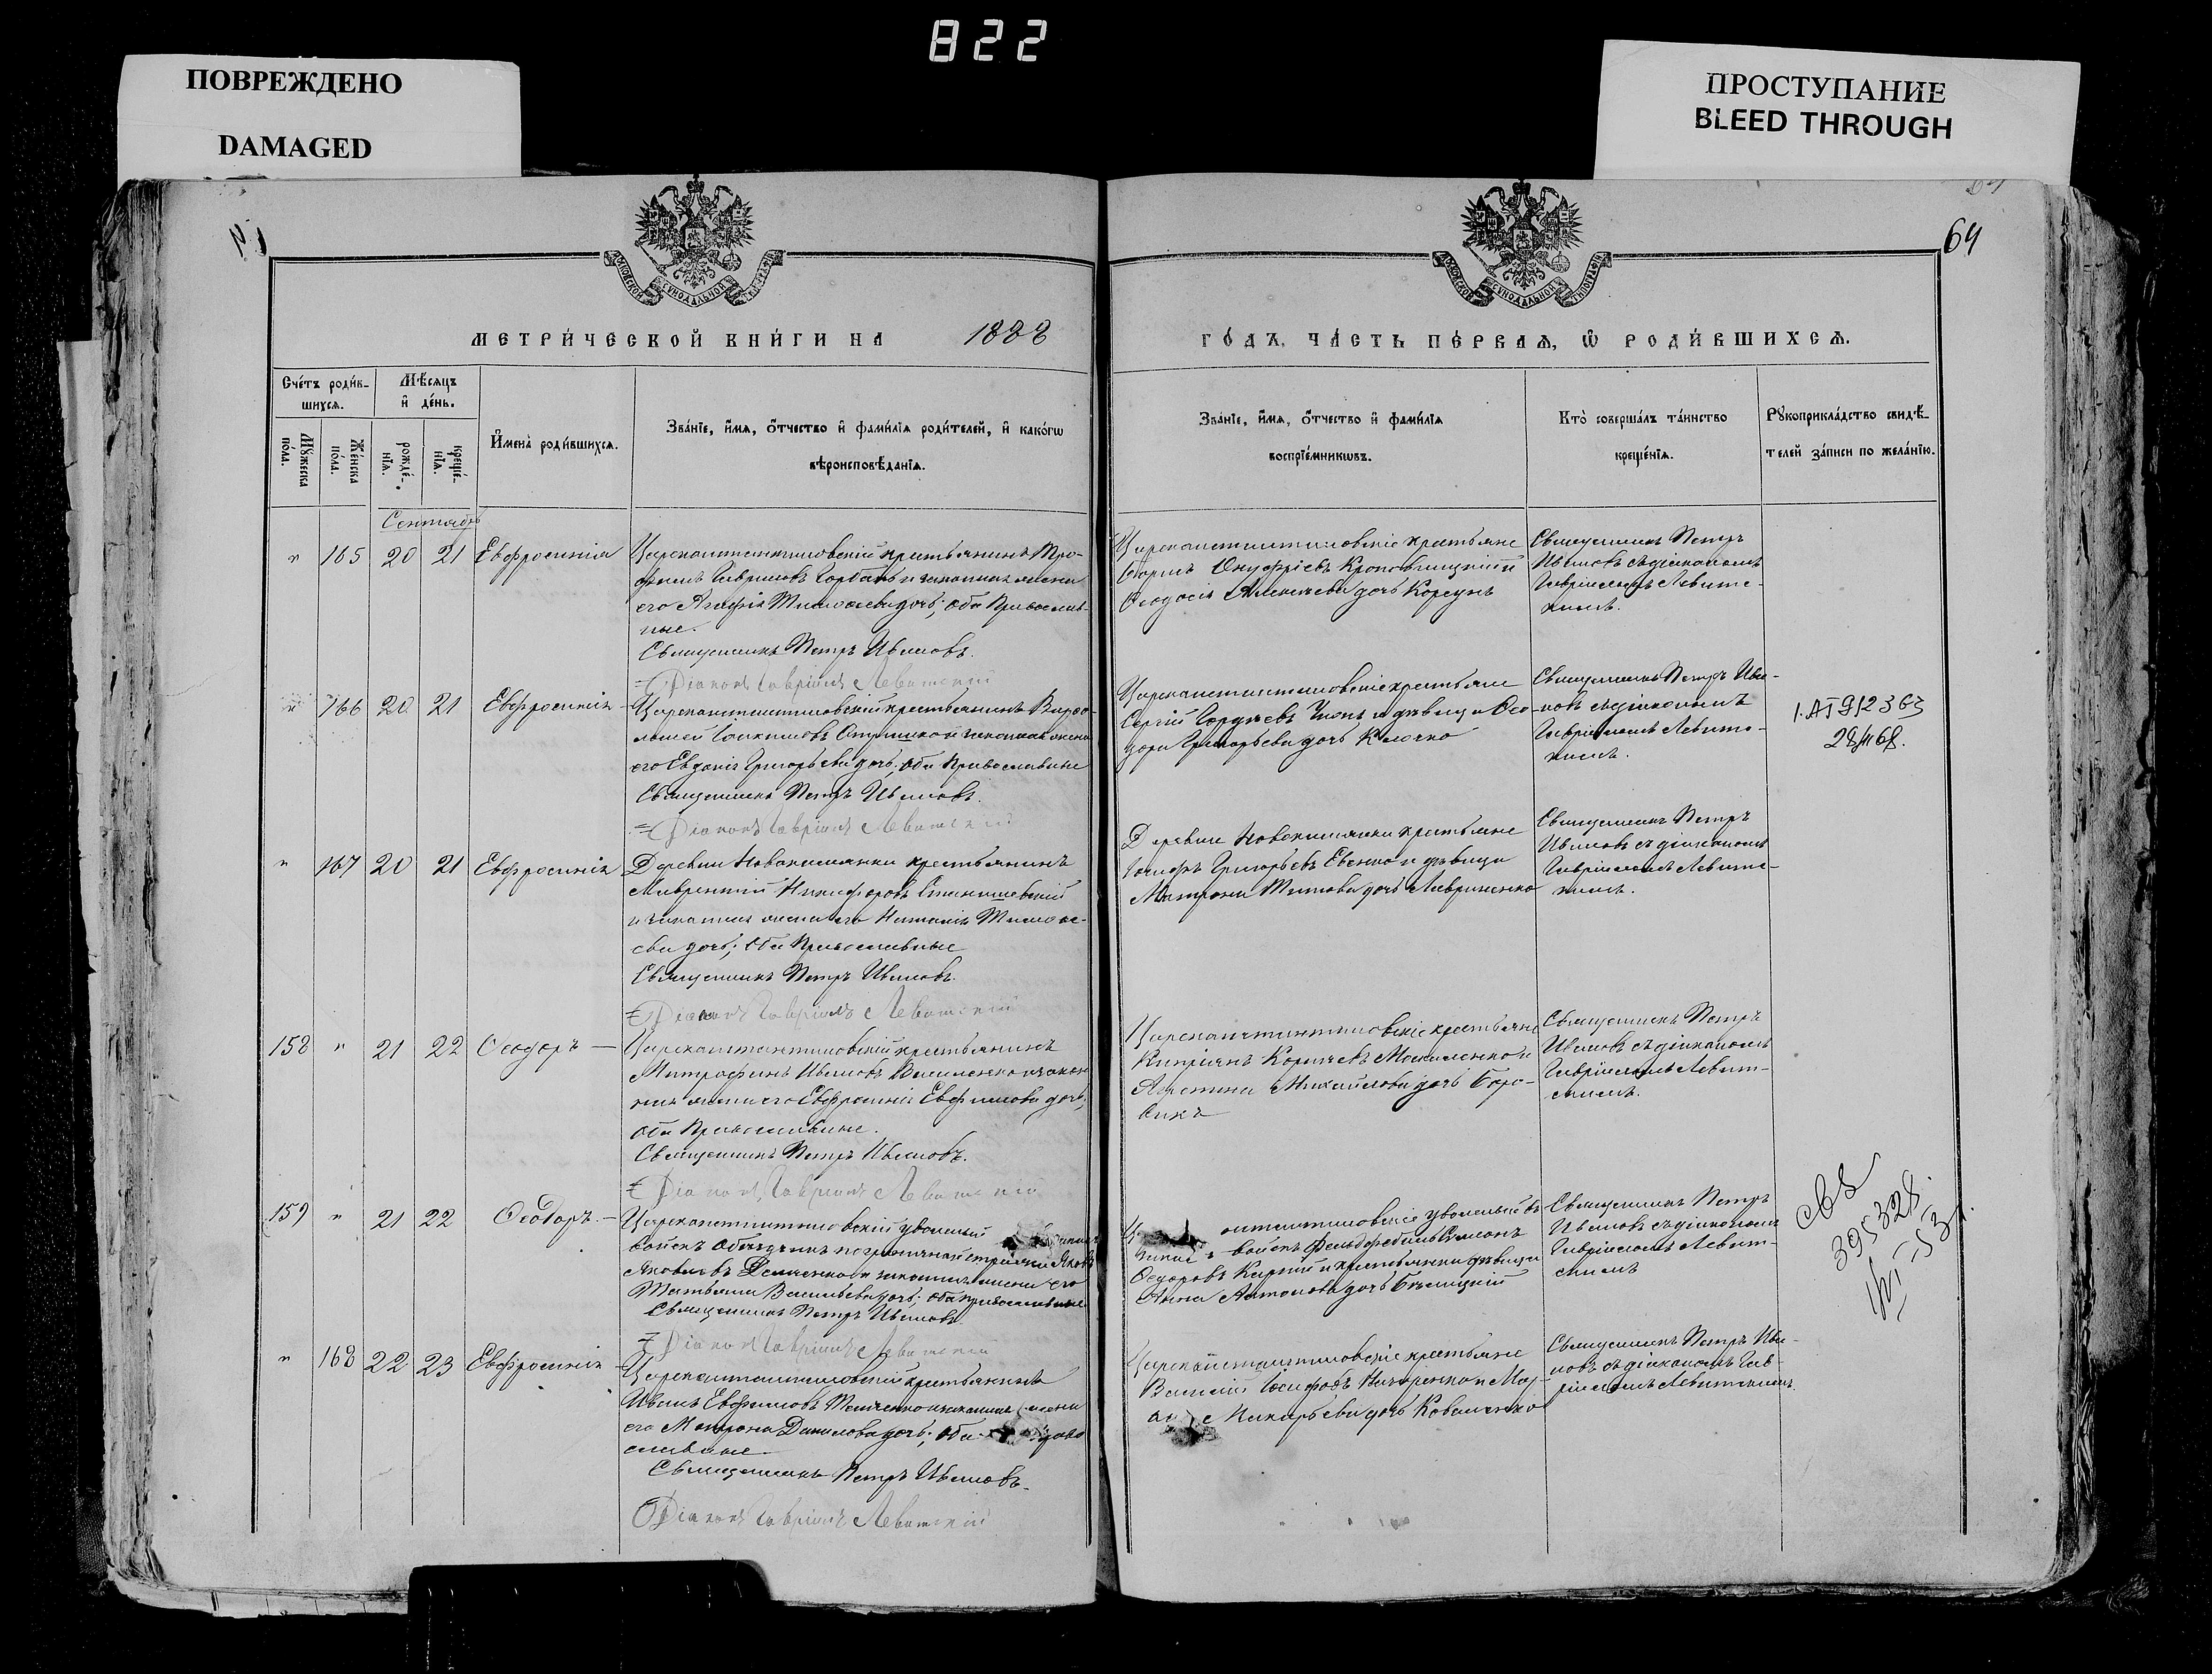 822
ПОВРЕЖДЕНО
DAMAGED
ПРОСТУПАНИЕ
BLEED THROUGH
64
МОСКОВСКОЙ СѴНОДАЛЬНОЙ ТИПОГРАФІИ
МОСКОВСКОЙ СѴНОДАЛЬНОЙ ТИПОГРАФІИ
МЕТРИ́ЧЕСКОЙ КНИ́ГИ НА 1888
ГО́ДЪ, ЧА́СТЬ ПЕ́РВАѦ, Ѿ РОДИ́ВШИХСѦ.
Сче́тъ роди́в-
шихсѧ.
Мѣ́сѧцъ
и҆ де́нь.
Мꙋ́жеска
по́ла.
Же́нска
по́ла.
рожде́-
нїѧ.
креще́-
нїѧ.
И҆мена̀ роди́вшихсѧ.
Зва́нїе, и҆́мѧ, ѻ҆́тчество и҆ фами́лїѧ роди́телей, и҆ како́гѡ
вѣроисповѣ́данїѧ.
Зва́нїе, и҆́мѧ, ѻ҆́тчество и҆ фами́лїѧ
воспрїе́мникѡвъ.
Кто̀ соверша́лъ та́инство
креще́нїѧ.
Рꙋкоприкла́дство свидѣ́-
телей за́писи по жела́нїю.
Сентябрь
" 165 20 21 Евфросинія
Цареконстантиновскій крестьянинъ Тро-
фимъ Гавриловъ Горбань и законная жена
его Агафія Тимофеева дочь; оба Православ-
ные.
Священникъ Петръ Ивановъ.
Діаконъ Гавріилъ Левитскій
Цареконстантиновскіе крестьяне
Онуфріевъ Кропотницкій и
Феодосія Алексеева дочь Корсунъ
Священникъ Петръ
Ивановъ съ діакономъ
Гавріиломъ Левитс-
кимъ.
" 166 20 21 Евфросинія
Цареконстантиновскій крестьянинъ Варѳо-
ломей Іоакимовъ и законная жена
его Евдокія Григорьева дочь; оба Православные
Священникъ Петръ Ивановъ.
Діаконъ Гавріилъ Левитскій
Цареконстантиновскіе крестьяне
Сергій Гордѣевъ и дѣвица Ѳео-
дора Григорьева дочь Клочко
Священникъ Петръ Ива-
новъ съ діакономъ
Гавріиломъ Левитс-
кимъ.
" 167 20 21 Евфросинія
Деревни Новоселовки крестьянинъ
Лаврентій Никифоровъ Станишевскій
и законная жена его Наталія Тимоѳе-
ева дочь; оба Православные
Священникъ Петръ Ивановъ.
Діаконъ Гавріилъ Левитскій
Деревни крестьяне
Іосифъ Григорьевъ Евенко и дѣвица
Матрона Титова дочь Лавриненко
Священникъ Петръ
Ивановъ съ діакономъ
Гавріиломъ Левитс-
кимъ.
158 " 21 22 Ѳеодоръ
Цареконстантиновскій крестьянинъ
Митрофанъ Ивановъ Василенко и закон-
ная жена его Евфросинія Евфимова дочь;
оба Православные.
Священникъ Петръ Ивановъ.
Діаконъ Гавріилъ Левитскій
Цареконстантиновскіе крестьяне
Кипріянъ Корніевъ и
Агрипина Михайлова дочь Боро-
викъ
Священникъ Петръ
Ивановъ съ діакономъ
Гавріиломъ Левит-
скимъ.
159 " 21 22 Ѳеодоръ
Цареконстантиновскій уволенный
войскъ Объездчикъ пограничной стражи Яковъ
Яковлевъ и законная жена его
Татьяна Васильева дочь; оба православные
Священникъ Петръ Ивановъ
Діаконъ Гавріилъ Левитскій
онстантиновскіе уволенный въ
войскъ Фельдфебель
Ѳеодоровъ и крестьянка дѣвица
Анна Антонова дочь Бѣлицкій
Священникъ Петръ
Ивановъ съ діакономъ
Гавріиломъ Левит-
скимъ
" 168 22 23 Евфросинія
Цареконстантиновскій крестьянинъ
Иванъ Евфимовъ Ткаченко и законная жена
его Матрона Данилова дочь; оба право
славные.
Священникъ Петръ Ивановъ.
Діаконъ Гавріилъ Левитскій
Цареконстантиновскіе крестьяне
Василій Іосифовъ Назаренко и Мар-
Макарьева дочь Коваленко
Священникъ Петръ Ива-
новъ съ діакономъ Гав-
ріиломъ Левитскимъ.
395328